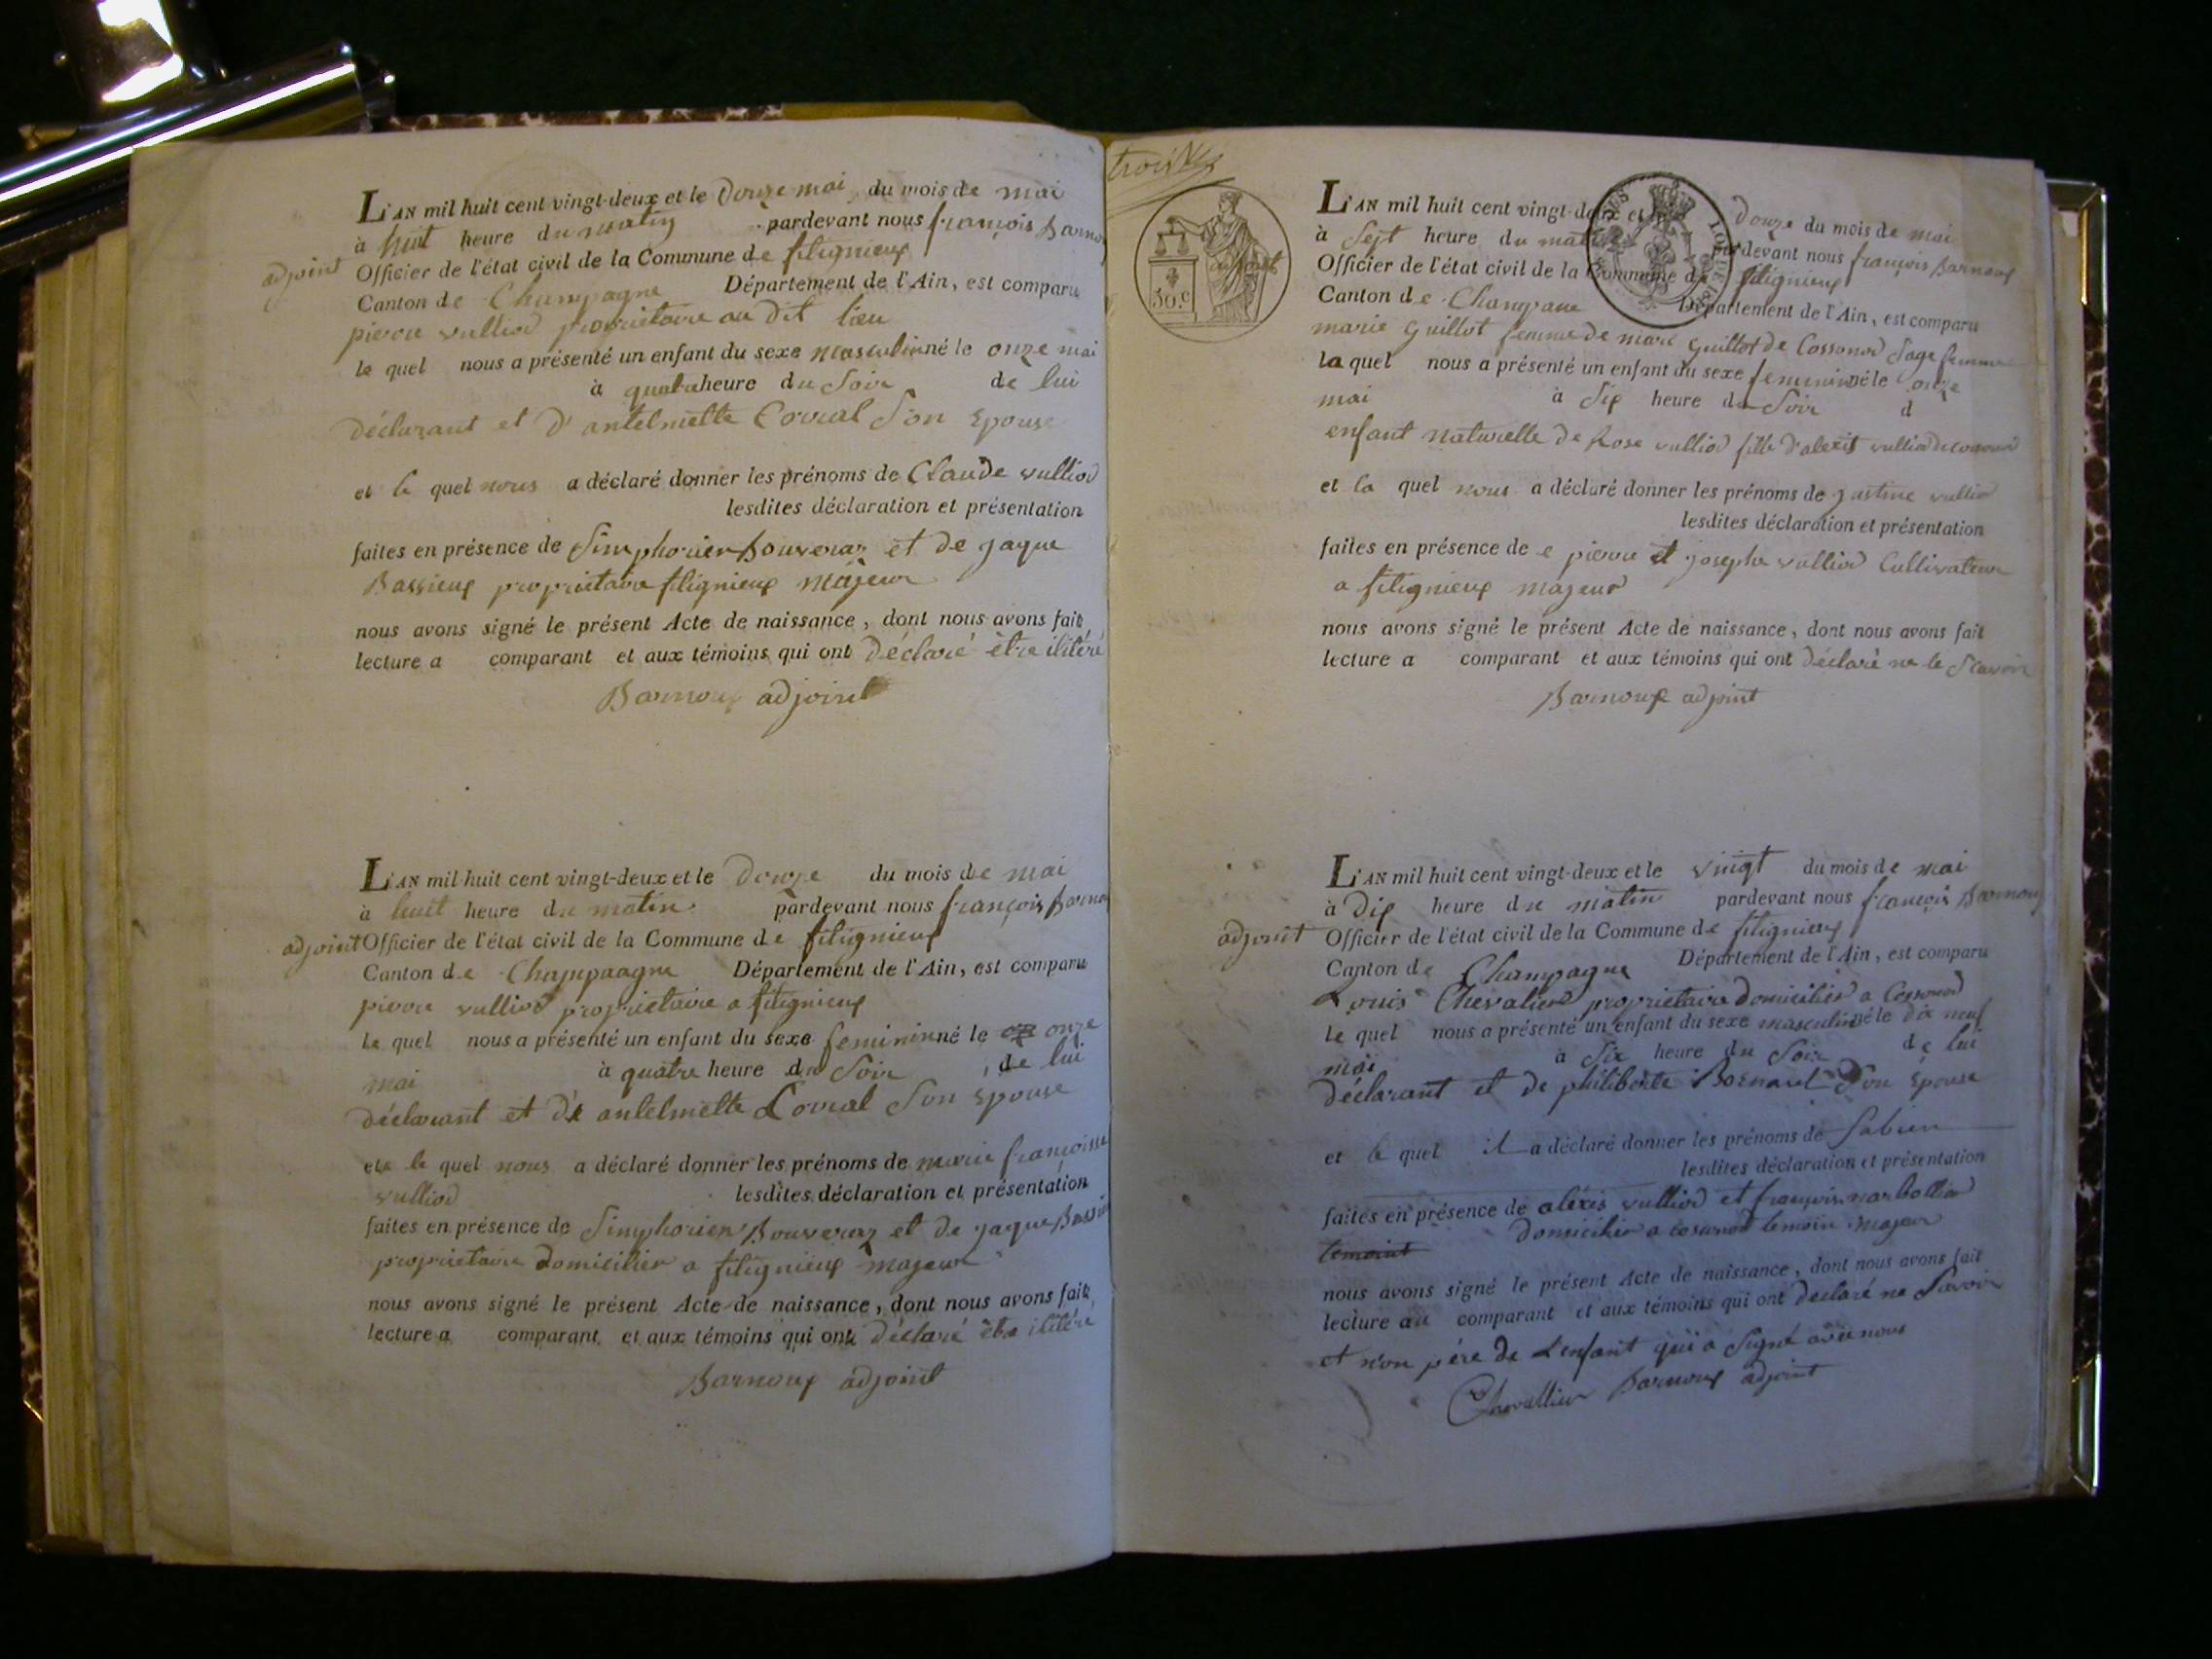 L'AN mil huit cent vingt-deux et le Douze mai du mois de mai
à huit heure du matin pardevant nous françois Barnou
adjoint Officier de l'état civil de la Commune de fitignieux
Canton de Champagne Département de l'Ain, est comparu
pierre vulliod proprietaire au dit lieu
le quel nous a présenté un enfant du sexe masculin né le onze mai
à quatre heure du Soir de lui
déclarant et d'antelmette Corcal Son Epouse
et le quel nous a déclaré donner les prénoms de Claude vulliod
lesdites déclaration et présentation
faites en présence de Simphorien Bouveraz et de jaque
Bassieux proprietaire fitignieux majeur
nous avons signé le présent Acte de naissance, dont nous avons fait
lecture a comparant et aux témoins qui ont déclaré être ilitéré
Barnoux adjoint
L'AN mil huit cent vingt-deux et le Douze du mois de mai
à huit heure du matin pardevant nous françois Barnou
adjoint Officier de l'état civil de la Commune de fitignieux
Canton de Champaagne Département de l'Ain, est comparu
pierre vulliod proprietaire a fitignieux
le quel nous a présenté un enfant du sexe feminin né le onze
mai à quatre heure du Soir de lui
déclarant et de antelmette Corcal Son Epouse
et le quel nous a déclaré donner les prénoms de marie françoisse
vulliod lesdites déclaration et présentation
faites en présence de Simphorien Bouveraz et de jaque Bassi
proprietaire domicilier a fitignieux majeur
nous avons signé le présent Acte de naissance, dont nous avons fait
lecture a comparant et aux témoins qui ont déclaré être ilitéré
Barnoux adjoint
trois
50.c
L'AN mil huit cent vingt-deux et le Douze du mois de mai
à Sept heure du matin pardevant nous françois Barnoux
adjoint Officier de l'état civil de la Commune de fitignieux
Canton de Champane Département de l'Ain, est comparu
marie guillot femme de marc guillot de Cossonod Sage femme
la quel nous a présenté un enfant du sexe feminin né le onze
mai à Six heure du Soir d
enfant naturelle de Rose vulliod fille d'alexis vulliod
et la quel nous a déclaré donner les prénoms de justine vulliod
lesdites déclaration et présentation
faites en présence de e pierre et josephe vulliod Cultivateur
a fitignieux majeur
nous avons signé le présent Acte de naissance, dont nous avons fait
lecture a comparant et aux témoins qui ont déclaré ne le Scavoir
Barnoux adjoint
L'AN mil huit cent vingt-deux et le vingt du mois de mai
à Dix heure du matin pardevant nous françois Barnoux
adjoint Officier de l'état civil de la Commune de fitignieux
Canton de Champagne Département de l'Ain, est comparu
Louis Chevalier proprietaire domicilier a Cossonod
le quel nous a présenté un enfant du sexe masculin né le dix neuf
mai à Six heure du Soir de lui
déclarant et de philiberte Bornard Son Epouse
et le quel il a déclaré donner les prénoms de fabien
lesdites déclaration et présentation
faites en présence de aléxis vulliod et françois narbollier
temoint domicilier a cosonod temoin majeur
nous avons signé le présent Acte de naissance, dont nous avons fait
lecture au comparant et aux témoins qui ont déclaré ne Savoir
et non père de L'enfant qui a Signé avec nous
Chevallier Barnoux adjoint